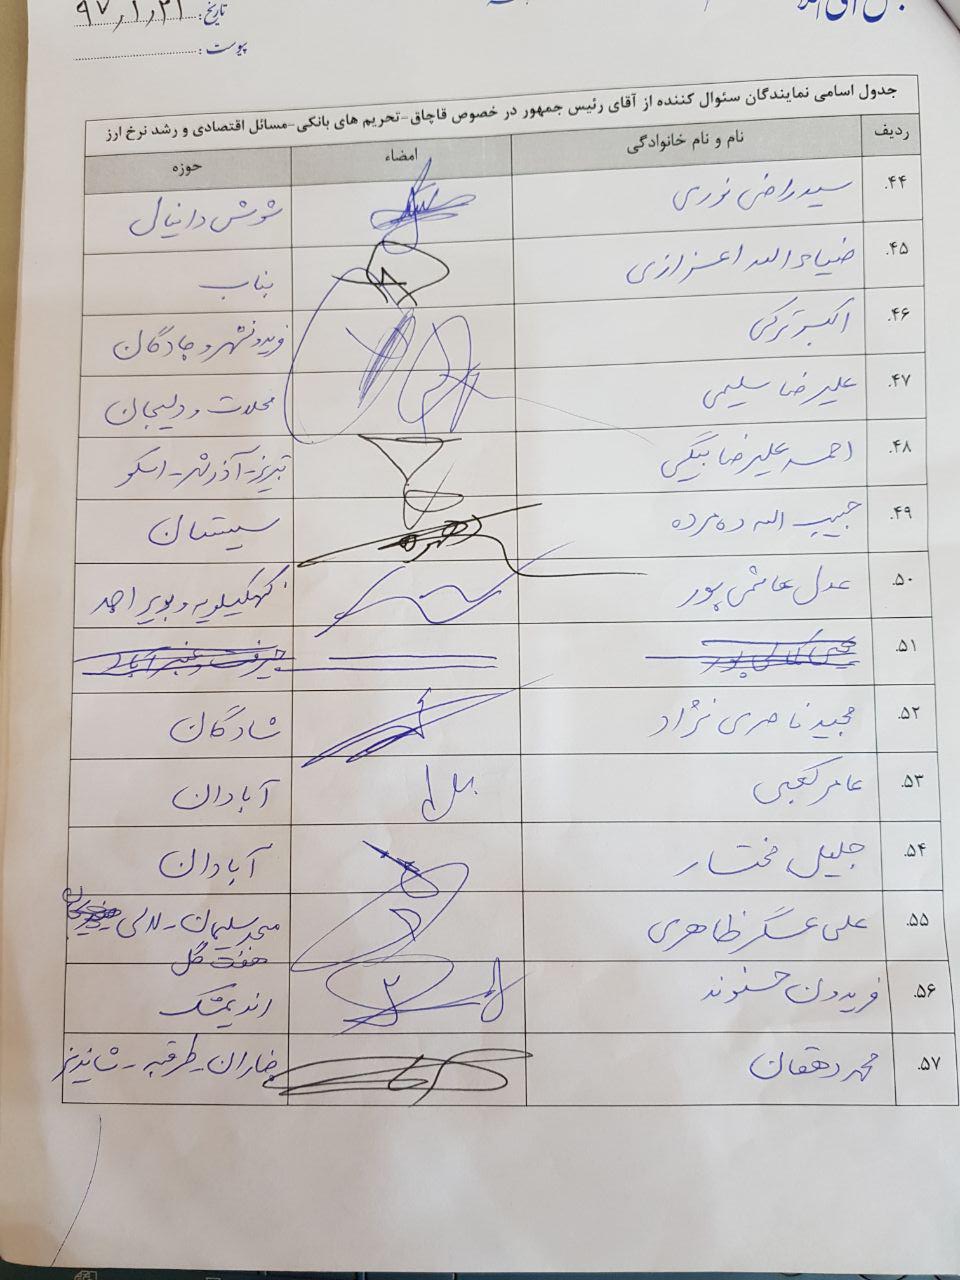 تاریخ: ۹۷/۱/۲۱
پیوست:
جدول اسامی نمایندگان سئوال کننده از آقای رئیس جمهور در خصوص قاچاق-تحریم های بانکی-مسائل اقتصادی و رشد نرخ ارز
ردیف نام و نام خانوادگی امضاء حوزه
۴۴. سید راضی نوری شوش دانیال
۴۵. ضیاء الله اعزازی بناب
۴۶. اکبر ترکی فریدونشهر و چادگان
۴۷. علیرضا سلیمی محلات و دلیجان
۴۸. احمد علیرضا بیگی تبریز - آذرشهر - اسکو
۴۹. حبیب الله دهمرده سیستان
۵۰. عدل هاشمی پور کهکیلویه و بویر احمد
۵۱. جیرفت و عنبرآباد
۵۲. مجید ناصری نژاد شادگان
۵۳. عامر کعبی آبادان
۵۴. جلیل مختار آبادان
۵۵. علی عسگر ظاهری مسجد سلیمان - لالی -
هفت گل
۵۶. فریدون حسنوند اندیمشک
۵۷. محمد دهقان چناران - طرقبه - شاندیز